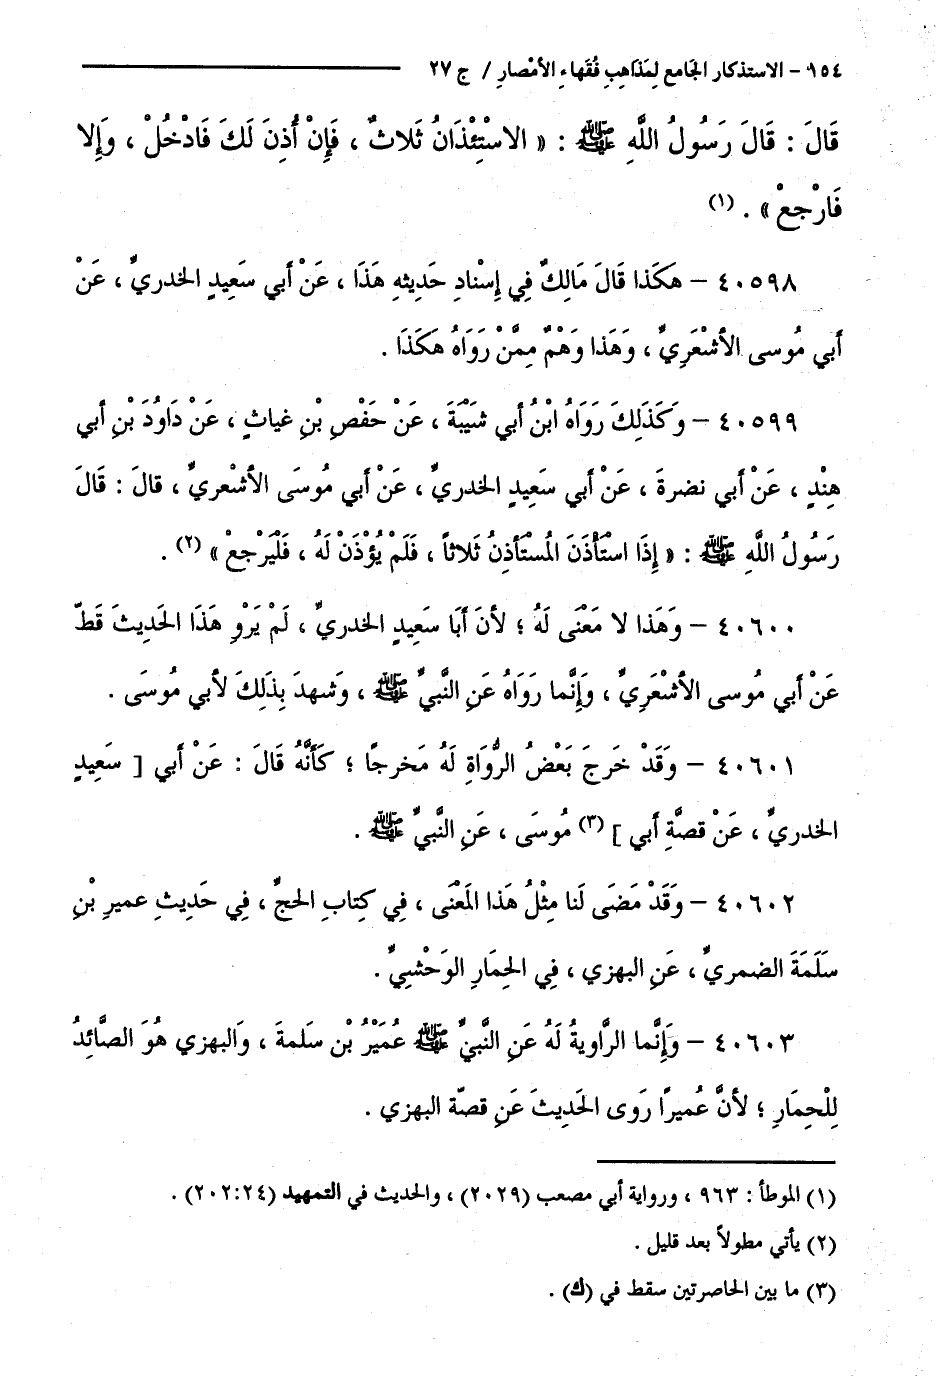 ١٥٤ - الاستذكار الجَامع لِمَذَاهِبِ فُقَهاءِ الأمْصارِ / ج ٢٧
قَالَ : قَالَ رَسُولُ اللَّهِ ﷺ : « الاسْتِئْذَانُ ثَلاثٌ ، فَإِنْ أُذِنَ لَكَ فَادْخُلْ ، وَإِلا
فَارْجعْ » . (١)
٤٠٥٩٨ - هَكَذا قَالَ مَالِكٌ فِي إِسْنادِ حَديثِهِ هَذَا ، عَنْ أبي سَعِيدٍ الخدريِّ ، عَنْ
أبي مُوسى الأشْعَرِيِّ ، وَهَذا وَهْمٌ مِمَّنْ رَوَاهُ هَكَذَا .
٤٠٥٩٩ - وَكَذَلِكَ رَوَاهُ ابْنُ أبي شَيْبَةَ ، عَنْ حَفْصِ بْنِ غياثٍ ، عَنْ دَاودَ بْنِ أبي
هِنْدٍ ، عَنْ أبي نضرةَ ، عَنْ أبي سَعِيدٍ الخدريِّ ، عَنْ أبي مُوسَى الأشْعريِّ ، قالَ : قَالَ
رَسُولُ اللَّهِ ﷺ : « إِذَا اسْتَأْذَنَ المُسْتَأذِنُ ثَلاثاً ، فَلَمْ يُؤْذَنْ لَهُ ، فَلْيَرْجعْ » (٢) .
٤٠٦٠٠ - وَهَذا لا مَعْنَى لَهُ ؛ لأنَ أبَا سَعِيدٍ الخدريِّ ، لَمْ يَرْوِ هَذَا الحَدِيثَ قَطّ
عَنْ أبي مُوسى الأشْعَرِيِّ ، وَإِنَّما رَوَاهُ عَنِ النَّبيِّ ﷺ ، وَشهدَ بِذَلِكَ لأبي مُوسَى .
٤٠٦٠١ - وَقَدْ خَرجَ بَعْضُ الرُّوَاةِ لَهُ مَخرجًا ؛ كَأَنَّهُ قَالَ : عَنْ أبي [ سَعِيدٍ
الخدريِّ ، عَنْ قصَّةِ أبي ] (٣) مُوسَى ، عَنِ النَّبيِّ ﷺ .
٤٠٦٠٢ - وَقَدْ مَضَى لَنا مِثْلُ هَذا المَعْنَى ، فِي كِتابِ الحجِّ ، فِي حَدِيثِ عميرِ بْنِ
سَلَمَةَ الضمريِّ ، عَنِ البهزي ، فِي الحِمَارِ الوَحْشيِّ .
٤٠٦٠٣ - وَإِنَّما الرَّاويةُ لَهُ عَنِ النَّبيِّ ﷺ عُمَيْرُ بْن سَلمةَ ، وَالبهزي هُوَ الصَّائِدُ
لِلْحِمَارِ ؛ لأنَّ عُميرًا رَوى الحَديثَ عَنِ قصّة البهزي .
(١) الموطأ : ٩٦٣ ، ورواية أبي مصعب (٢٠٢٩) ، والحديث في التمهيد (٢٠٢:٢٤) .
(٢) يأتي مطولاً بعد قليل .
(٣) ما بين الحاصرتين سقط في (ك) .